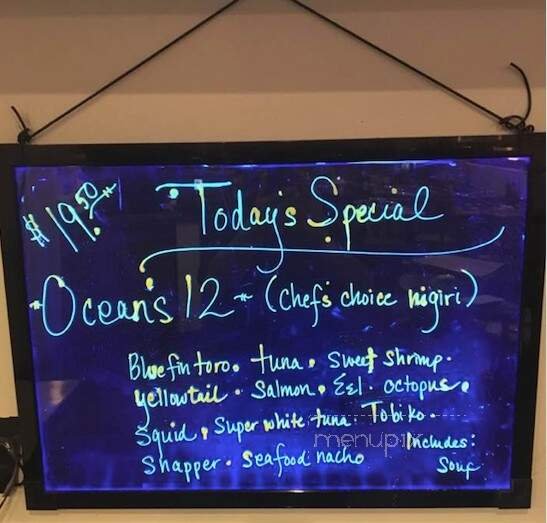 $19.50
Today's Special
*Ocean's 12* (Chef's choice nigiri)
Bluefin toro. tuna. Sweet shrimp.
yellowtail. Salmon. Eel. octopus.
Squid. Super white tuna. Tobiko.
Snapper. Seafood nacho
Includes:
Soup
menupix